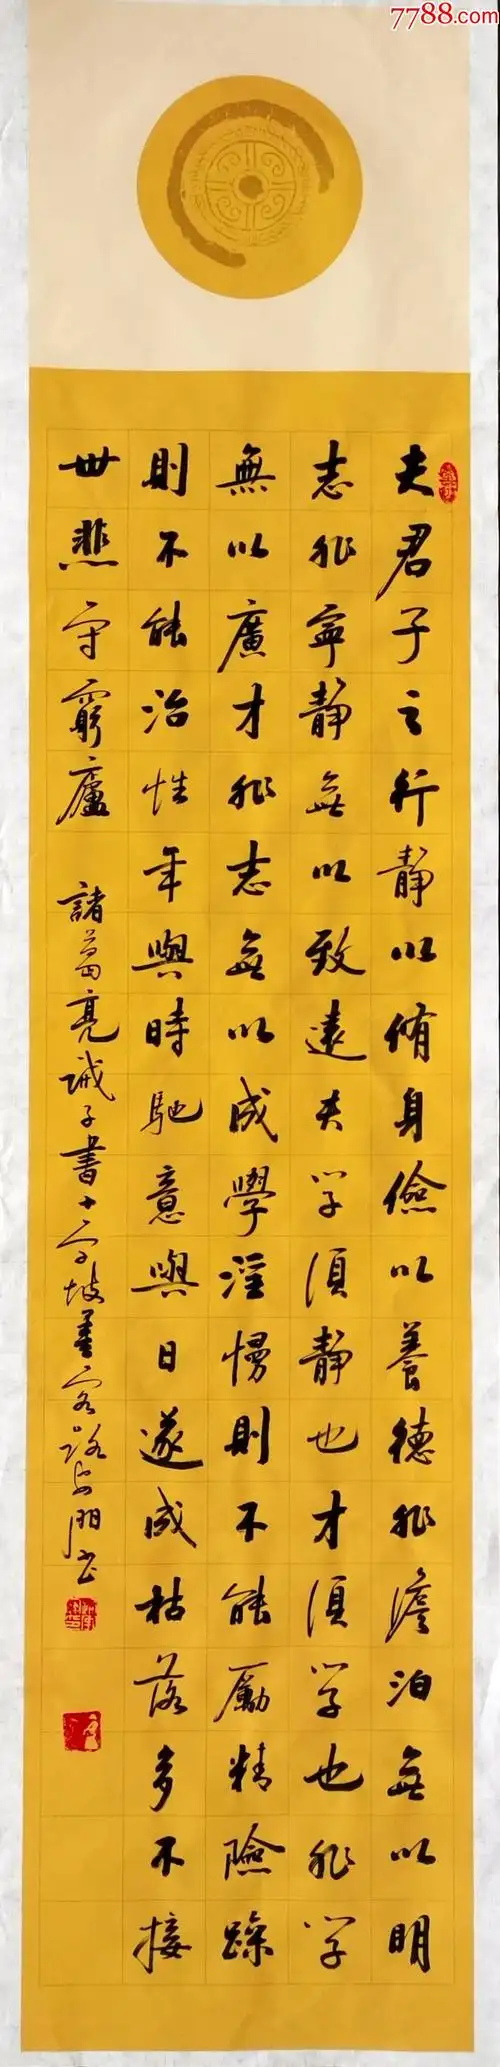 7788.com
夫君子之行静以脩身儉以養德非澹泊無以明
志非寧静無以致遠夫学須静也才須学也非学
無以廣才非志無以成學淫慢則不能勵精險躁
則不能治性年與時馳意與日遂成枯落多不接
世悲守窮廬
諸葛亮誡子書